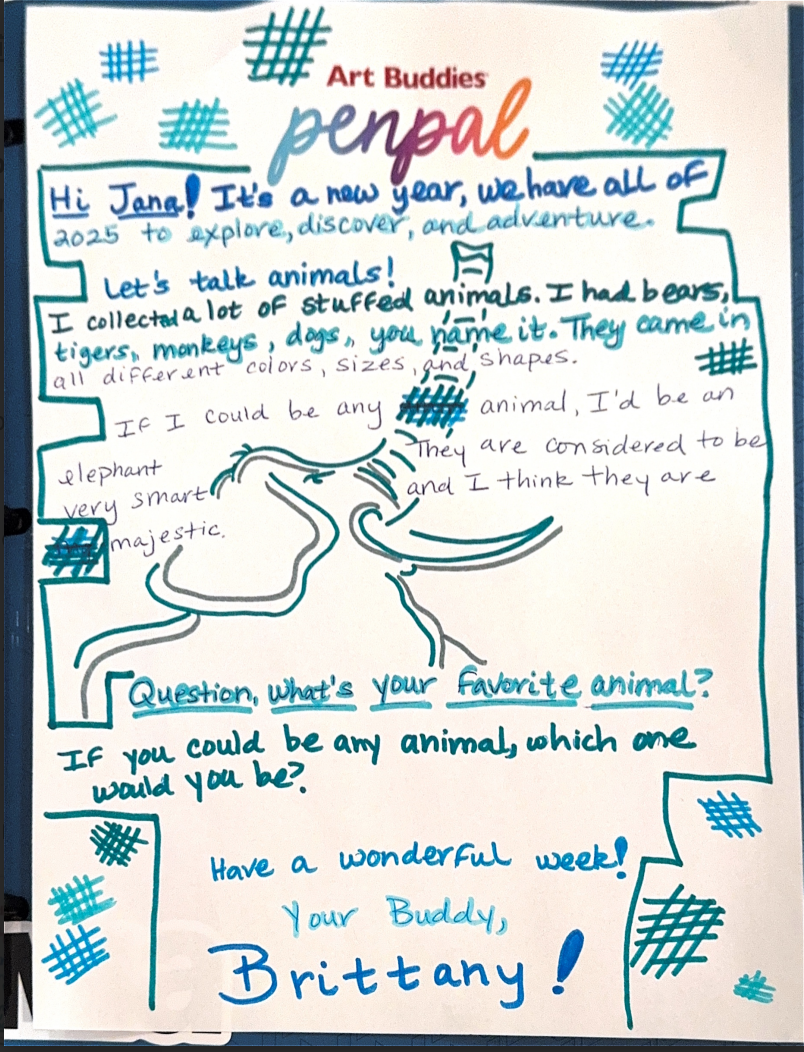 Art Buddies
penpal
Hi Jana! It's a new year, we have all of
2025 to explore, discover, and adventure.
Let's talk animals!
I collected a lot of stuffed animals. I had bears,
tigers, monkeys, dogs, you name it. They came in
all different colors, sizes, and shapes.
If I could be any animal, I'd be an
elephant They are considered to be
very smart and I think they are
majestic.
Question, what's your favorite animal?
If you could be any animal, which one
would you be?
Have a wonderful week!
Your Buddy,
Brittany!